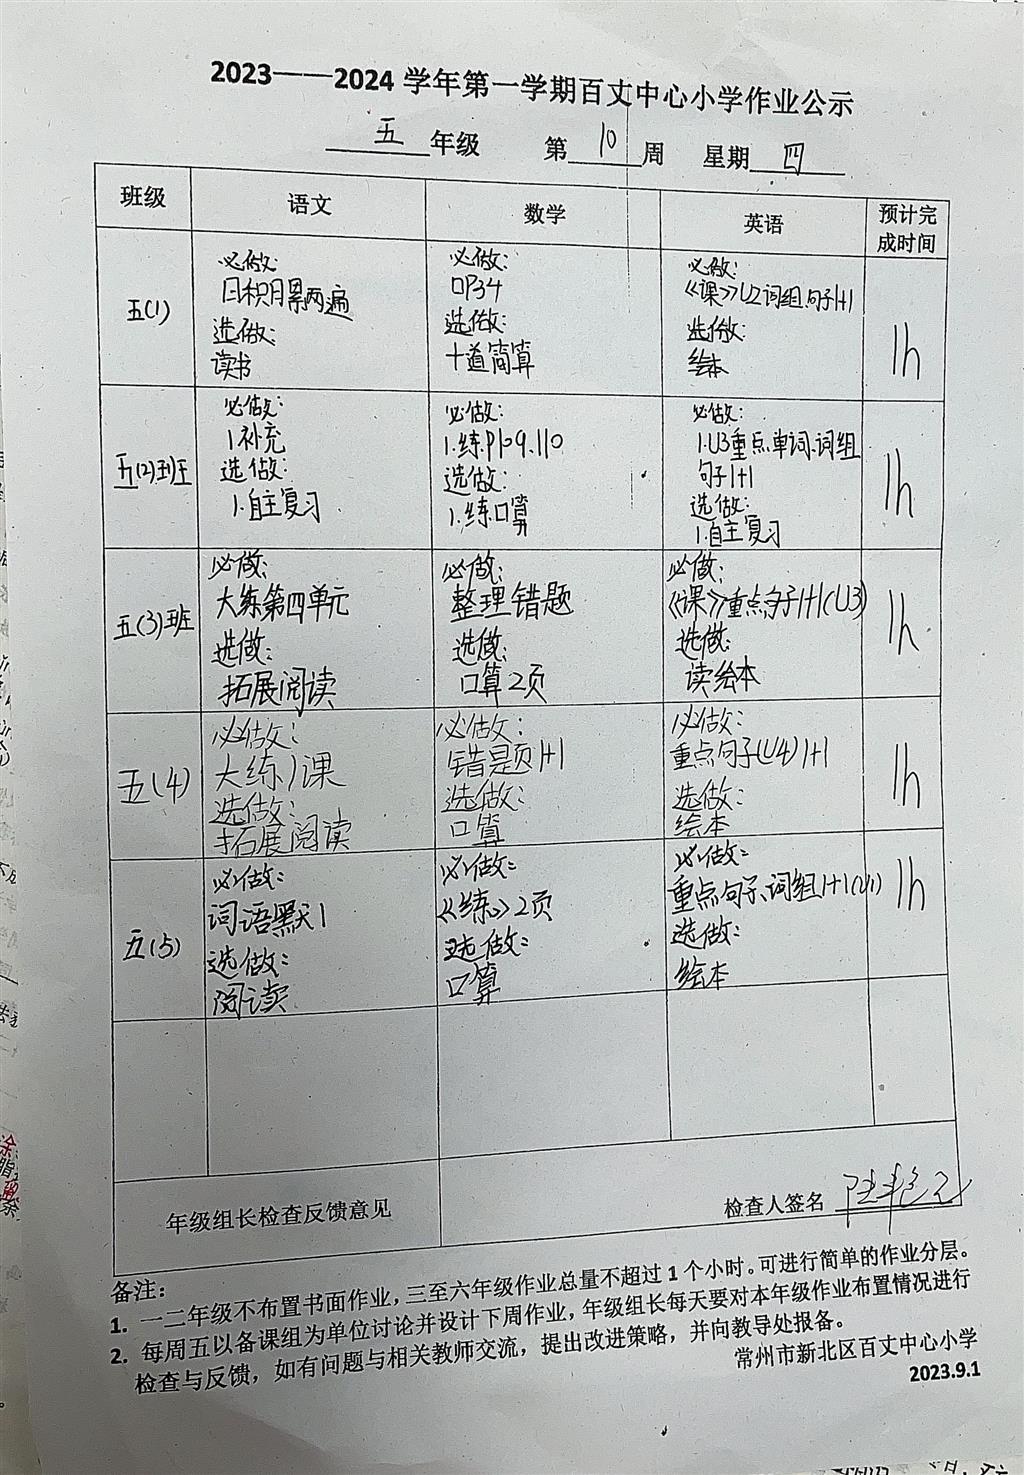 2023——2024 学年第一学期百丈中心小学作业公示
五 年级 第 10 周 星期 四
班级 语文 数学 英语 预计完成时间
五(1)
必做:
日积月累两遍
选做:
读书
必做:
口P34
选做:
十道简算
必做:
《课》U2词组.句子1+1
选做:
绘本
1h
五(2)班
必做:
1.补充
选做:
1.自主复习
必做:
1.练P109.110
选做:
1.练口算
必做:
1.U3重点单词、词组
句子1+1
选做:
1.自主复习
1h
五(3)班
必做:
大练第四单元
选做:
拓展阅读
必做:
整理错题
选做:
口算2页
必做:
《课》重点句子1+1(U3)
选做:
读绘本
1h
五(4)
必做:
大练1课
选做:
拓展阅读
必做:
错题1+1
选做:
口算
必做:
重点句子(U4)1+1
选做:
绘本
1h
五(5)
必做:
词语默1
选做:
阅读
必做:
《练》2页
选做:
口算
必做:
重点句子、词组1+1(U1)
选做:
绘本
1h
年级组长检查反馈意见
检查人签名
备注:
1. 一二年级不布置书面作业,三至六年级作业总量不超过1个小时。可进行简单的作业分层。
2. 每周五以备课组为单位讨论并设计下周作业,年级组长每天要对本年级作业布置情况进行
检查与反馈,如有问题与相关教师交流,提出改进策略,并向教导处报备。
常州市新北区百丈中心小学
2023.9.1